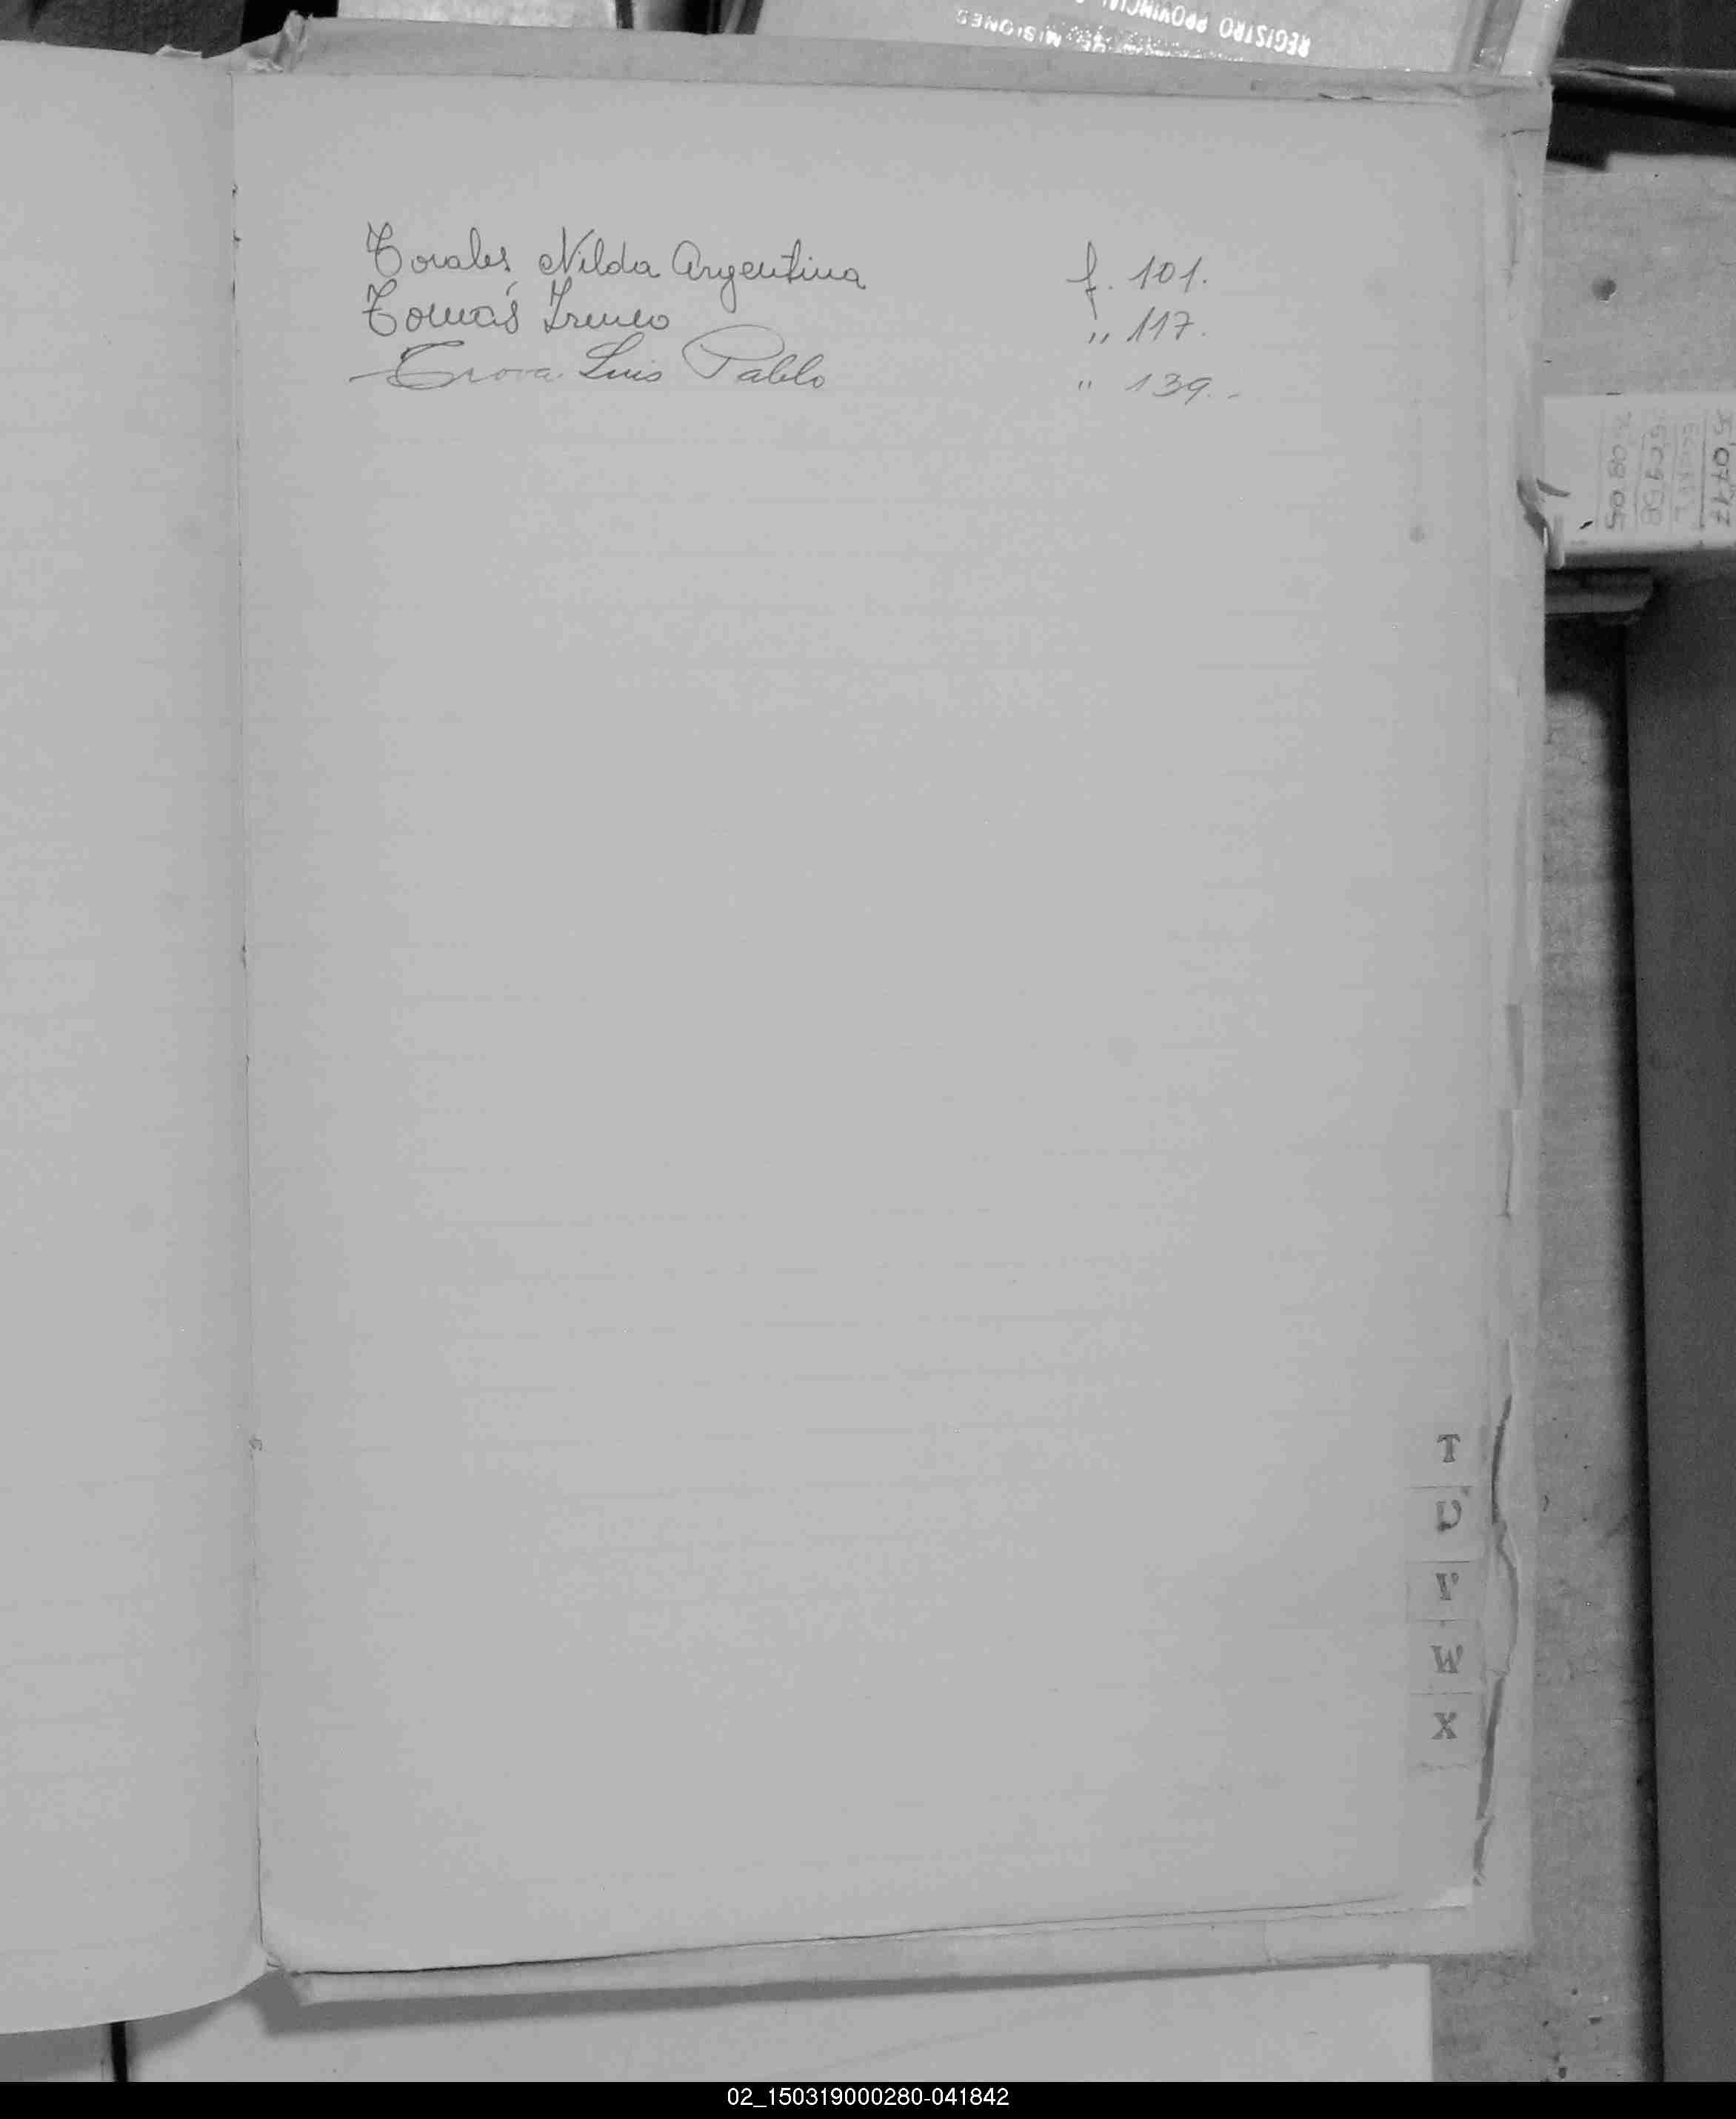 REGISTRO PROVINCIAL
MISIONES
Torales Nilda Argentina f. 101.
Tomás Ireneo " 117.
Trova Luis Pablo " 139.-
T
U
V
W
X
02_150319000280-041842